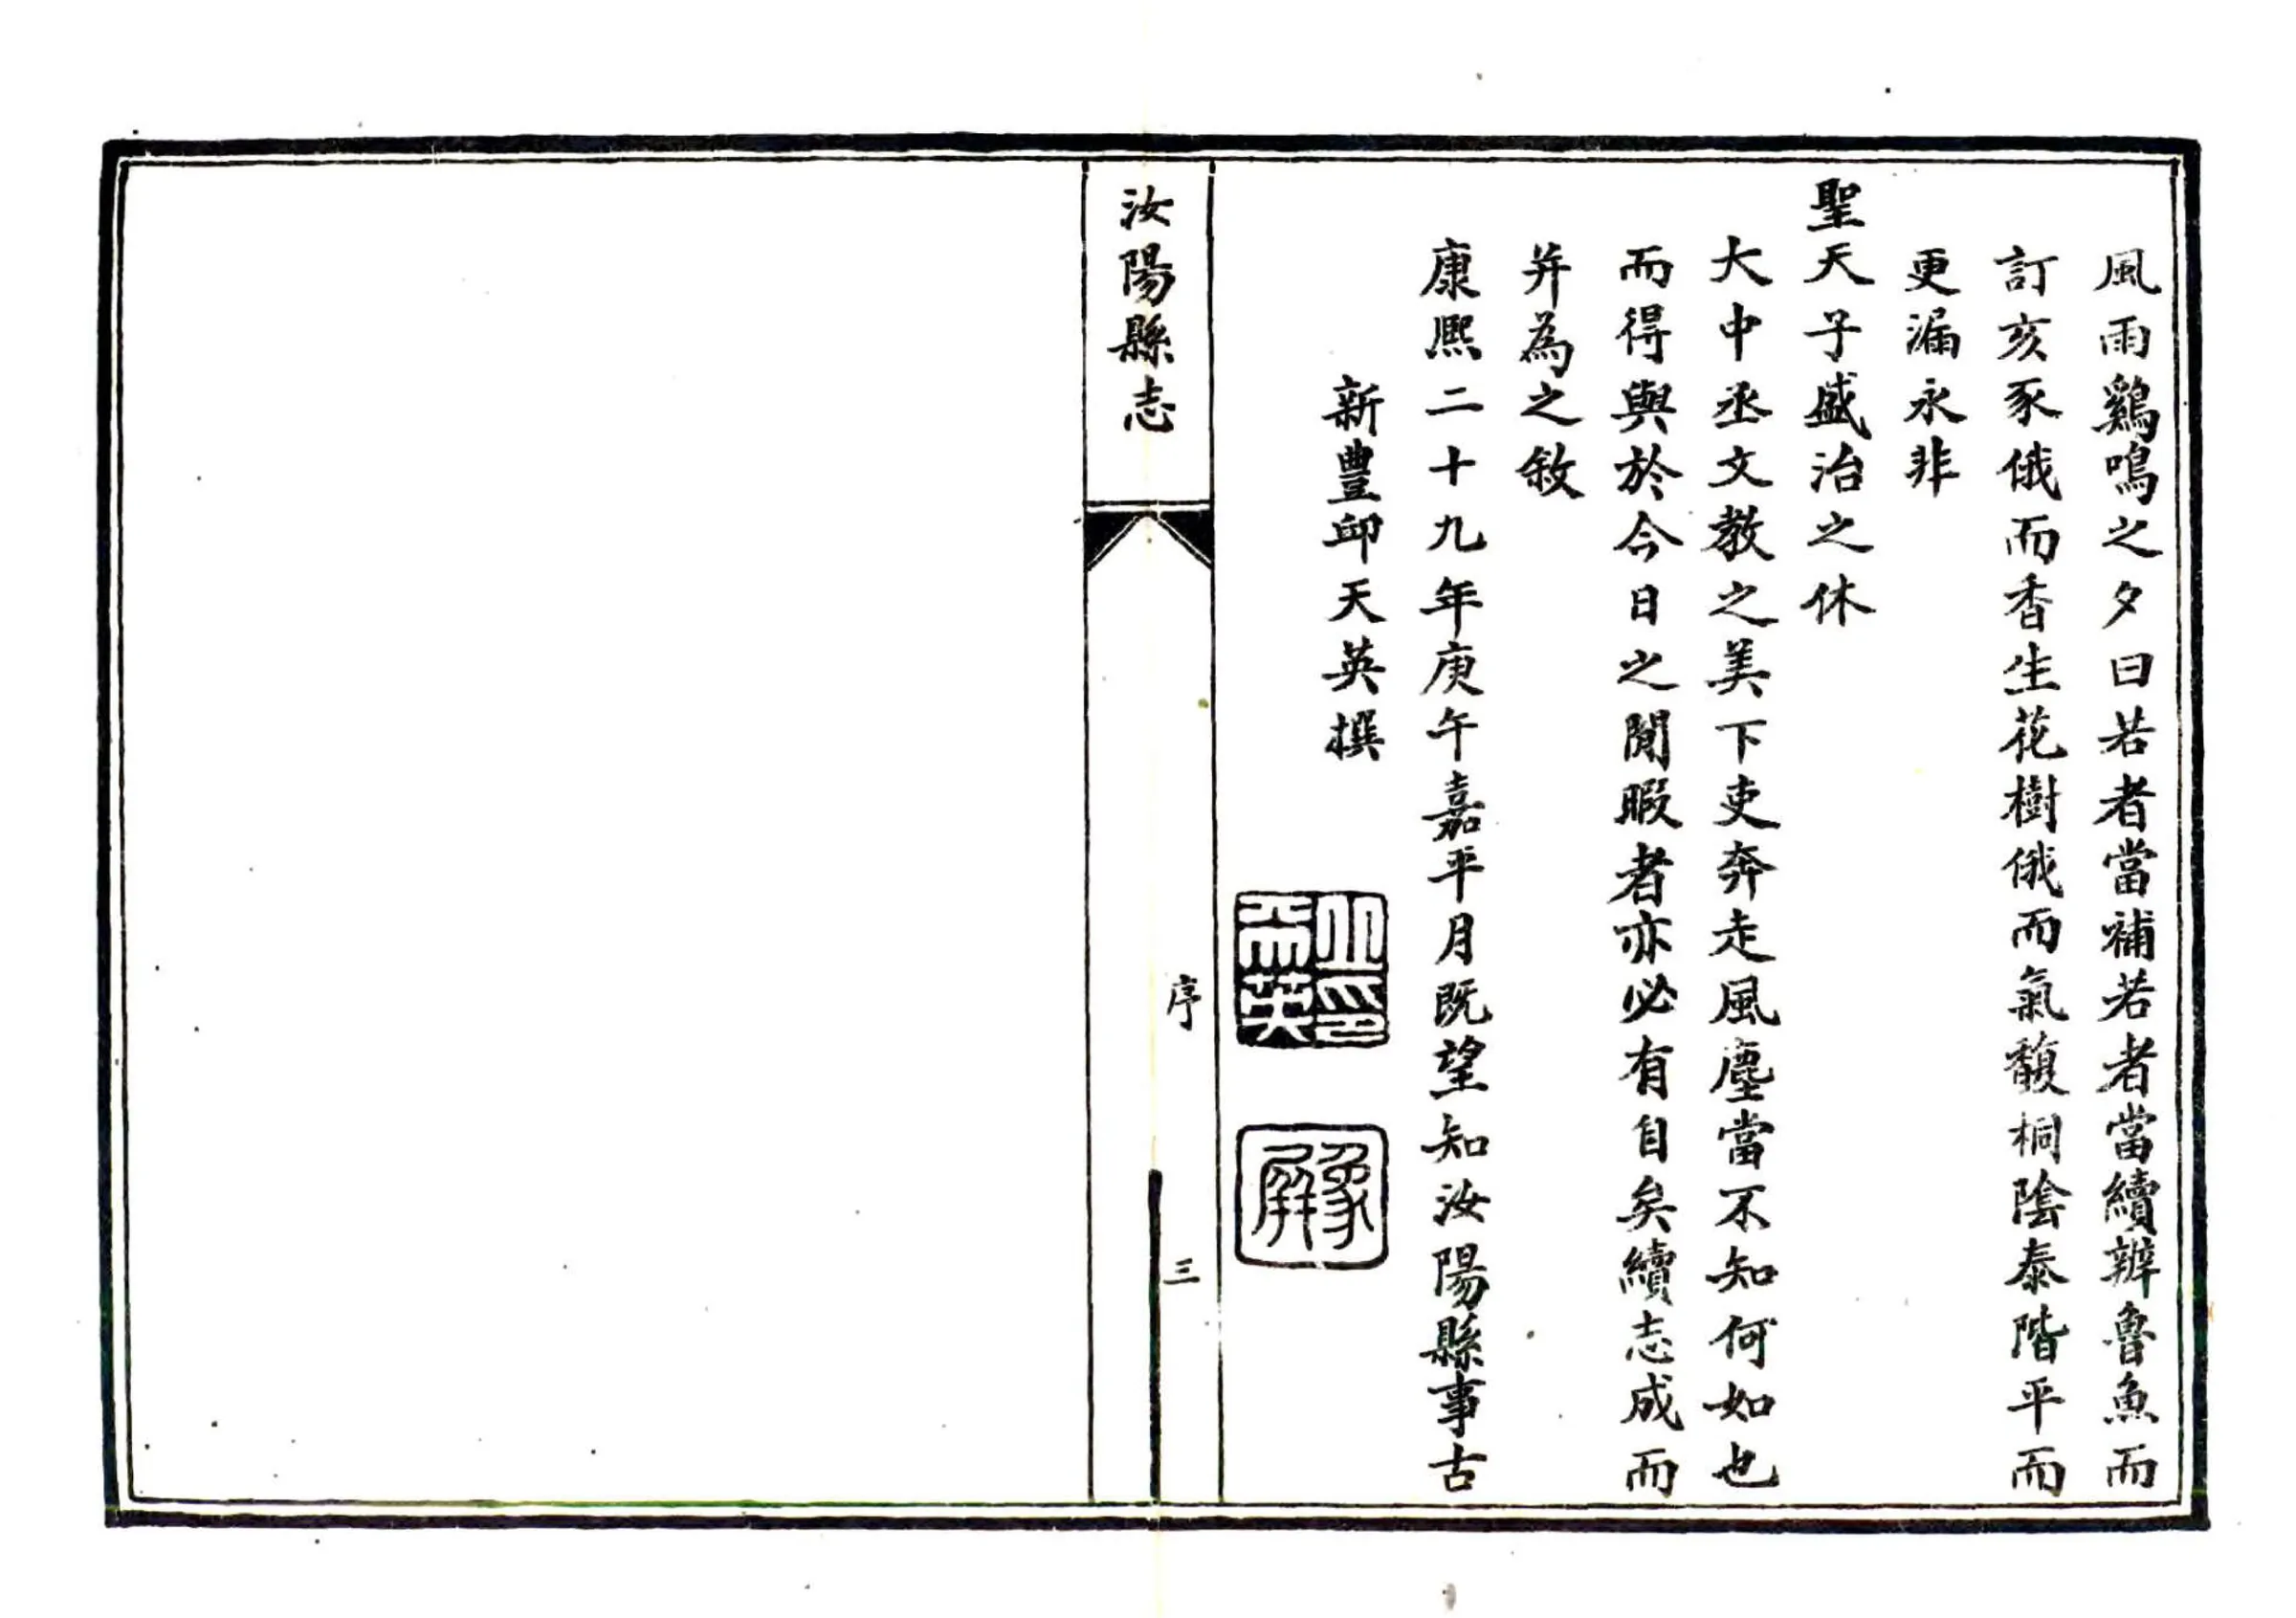 風雨鷄鳴之夕曰若者當補若者當續辨魯魚而
訂亥豕俄而香生花樹俄而氣馥桐陰泰階平而
更漏永非
聖天子盛治之休
大中丞文教之美下吏奔走風塵當不知何如也
而得與於今日之閒暇者亦必有自矣續志成而
并為之敘
康熙二十九年庚午嘉平月既望知汝陽縣事古
新豊邱天英撰
天英之印
豫屏
汝陽縣志
序
三